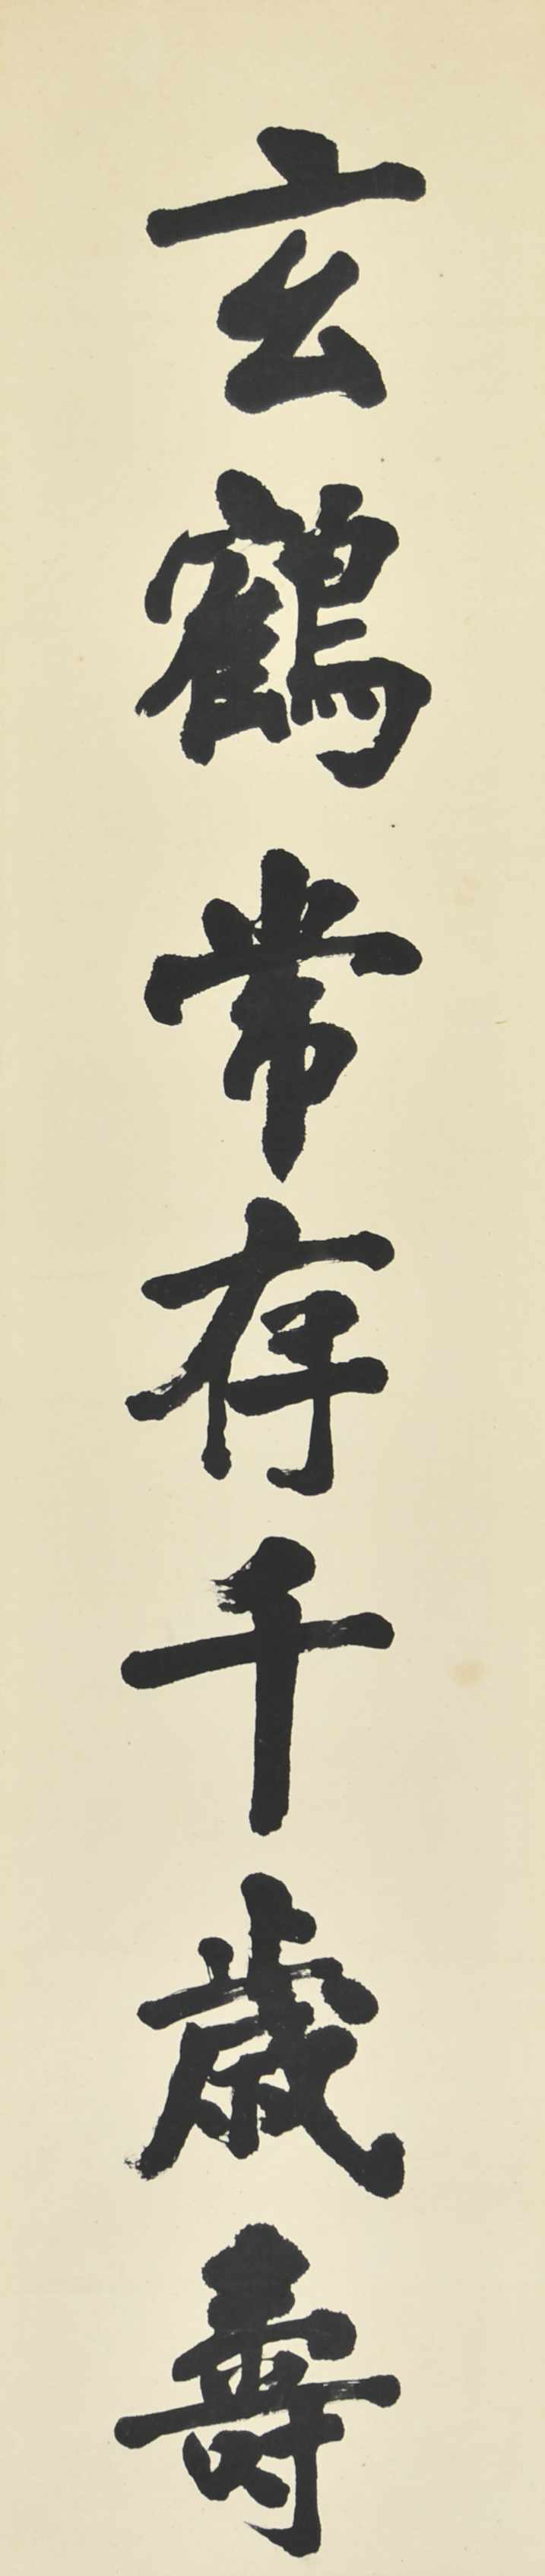 玄鶴常存千歲壽